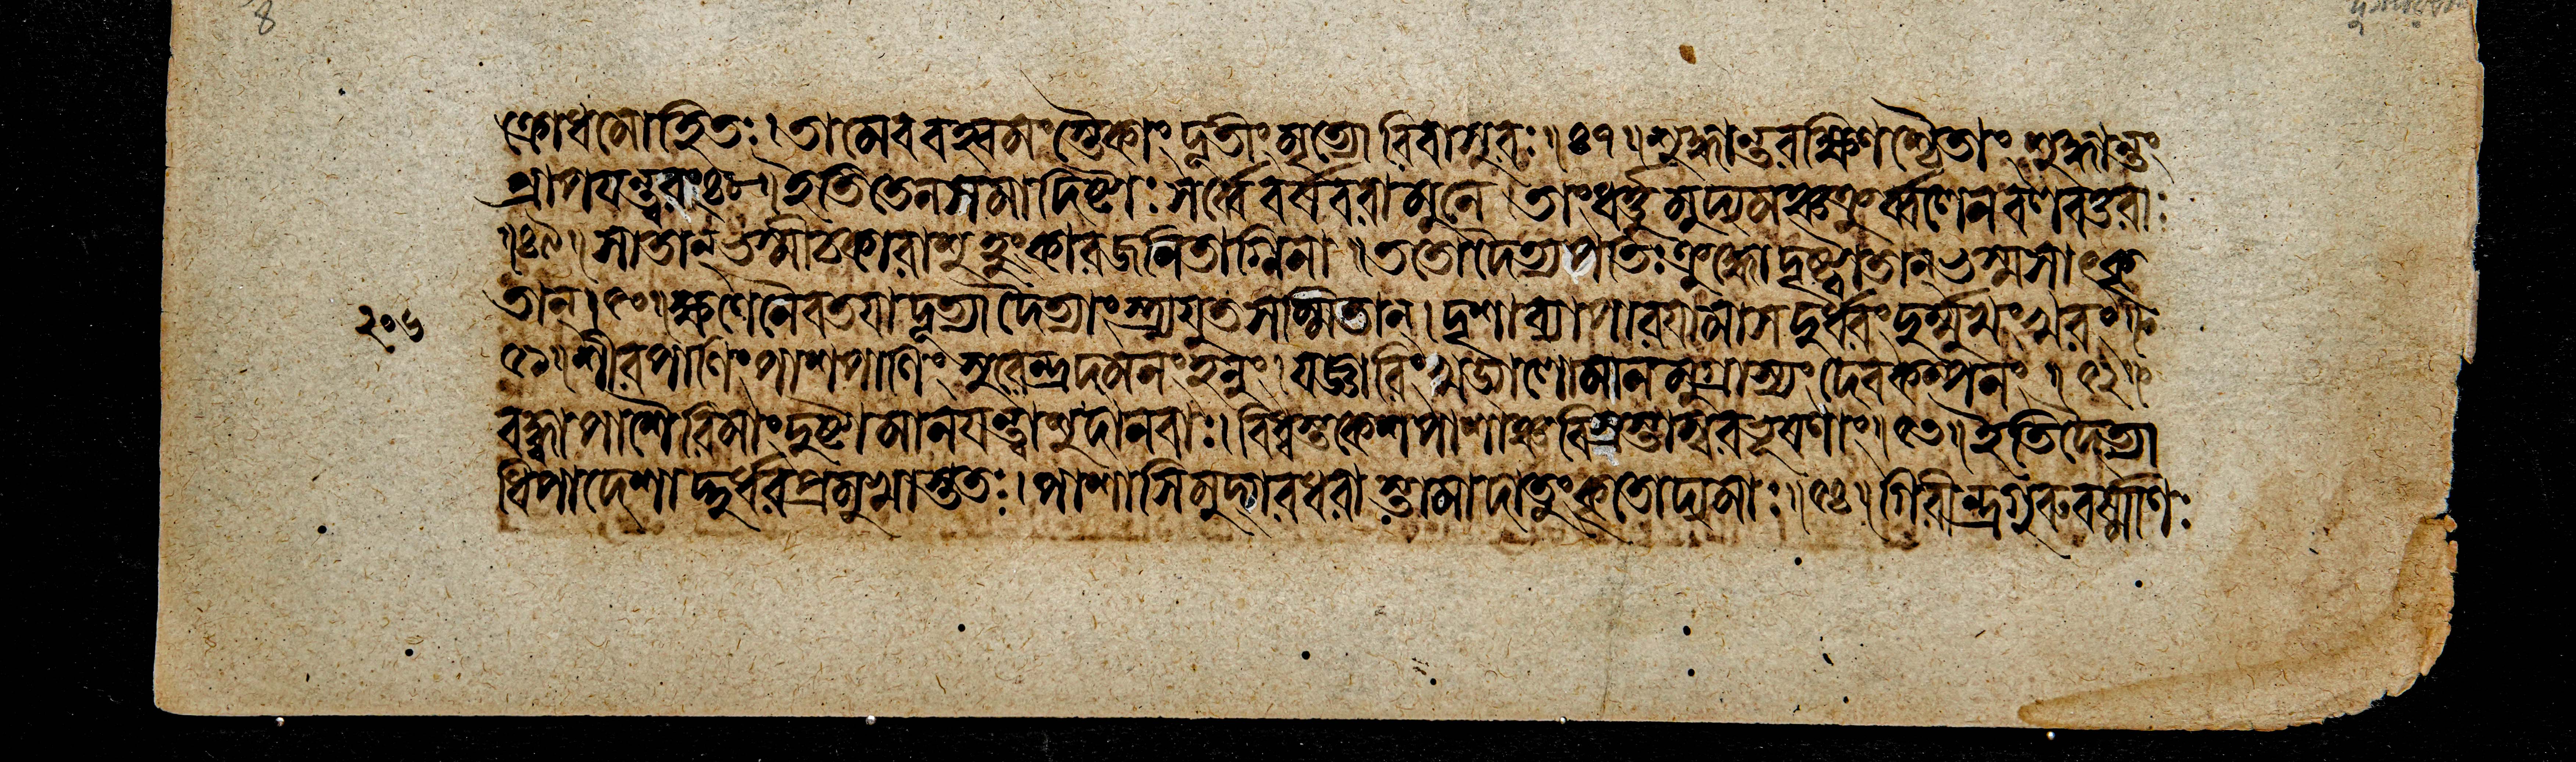 ক্রোধমোহিতঃ। তামেব বহ্বমংস্তৈকাং দূতীং মৃত্যোরিবাসুরঃ॥৪৭॥ শুদ্ধান্তরক্ষিণশ্চৈতাং শুদ্ধান্তং
প্রাপয়ন্ত্বরং ৪৮॥ ইতি তেন সমাদিষ্টাঃ সর্ব্বে বর্ষবরা মুনে। তাং ধর্ত্তুমুদ্যমঞ্চক্রুর্ব্বলেন বলবত্তরাঃ
॥৪৯॥ সা তান্ ভস্মীচকারাশু হুংকারজনিতাগ্নিনা॥ ততো দৈত্যপতিঃ ক্রুদ্ধো দৃষ্ট্বা তান্ ভস্মসাৎকৃ
তান্। ৫০॥ ক্ষণেনৈব তয়া দূত্যা দৈত্যাংস্ত্র্যযুতসম্মিতান্। দৃশা ব্যাপারয়ামাস দুর্ধরং দুর্ম্মুখং খরং॥
৫১॥ সীরপাণিং পাশপাণিং সুরেন্দ্রদমনং হনুং। যজ্ঞারিং খড্গলোমানমুগ্রাস্যং দেবকম্পনং॥৫২॥
বদ্ধ্বা পাশৈরিমাং দুষ্টামানয়ন্ত্বাশু দানবাঃ। বিধ্বস্তকেশপাশাঞ্চ বিস্রস্তাম্বরভূষণাং॥৫৩॥ ইতি দৈত্যা
ধিপাদেশাদ্দুর্ধরপ্রমুখাস্ততঃ। পাশাসিমুদ্গরধরাস্তামাদাতুং কৃতোদ্যমাঃ॥৫৪॥ গিরীন্দ্রগুরুবর্ষ্মাণঃ
২০৬
8